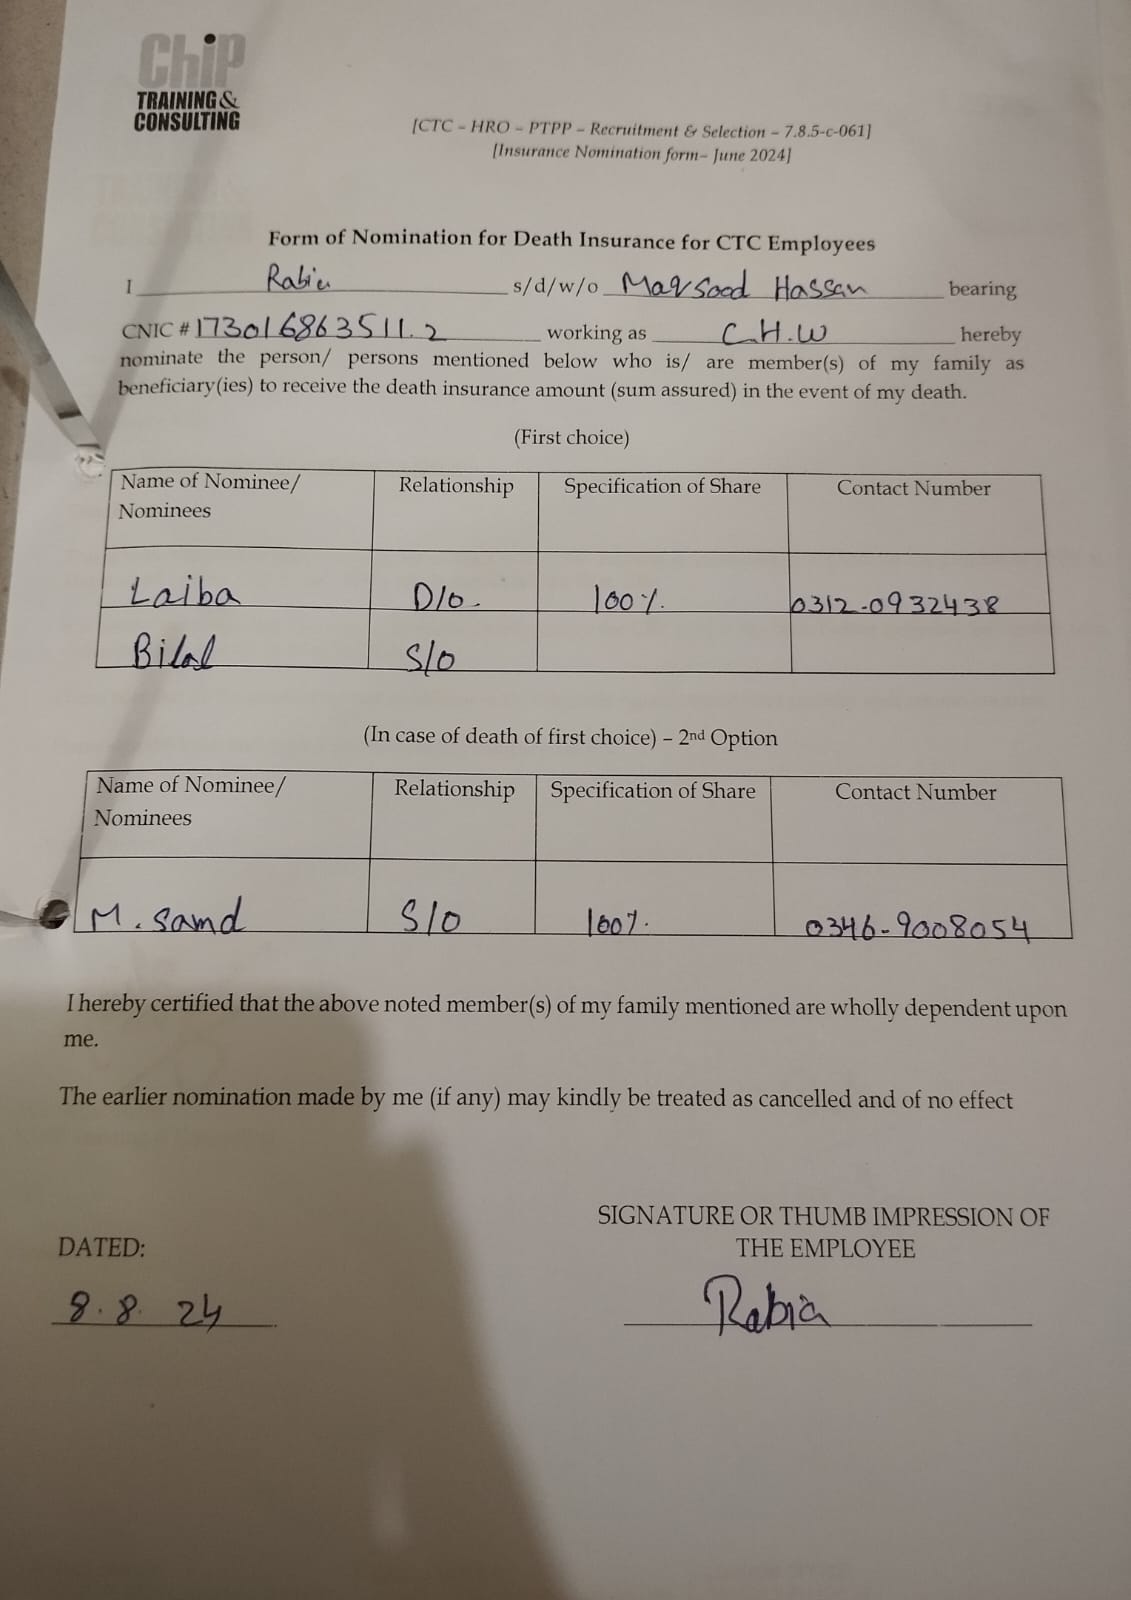 ChiP
TRAINING &
CONSULTING
[CTC – HRO – PTPP – Recruitment & Selection – 7.8.5-c-061]
[Insurance Nomination form– June 2024]
Form of Nomination for Death Insurance for CTC Employees
I Rabia s/d/w/o Maqsood Hassan bearing
CNIC # 173016863511.2 working as C.H.W hereby
nominate the person/ persons mentioned below who is/ are member(s) of my family as
beneficiary(ies) to receive the death insurance amount (sum assured) in the event of my death.
(First choice)
Name of Nominee/ Relationship Specification of Share Contact Number
Nominees
Laiba D/o. 100%. 0312-0932438
Bilal S/o
(In case of death of first choice) – 2nd Option
Name of Nominee/ Relationship Specification of Share Contact Number
Nominees
M. Samd S/o 100%. 0346-9008054
I hereby certified that the above noted member(s) of my family mentioned are wholly dependent upon
me.
The earlier nomination made by me (if any) may kindly be treated as cancelled and of no effect
SIGNATURE OR THUMB IMPRESSION OF
DATED: THE EMPLOYEE
8.8. 24 Rabia